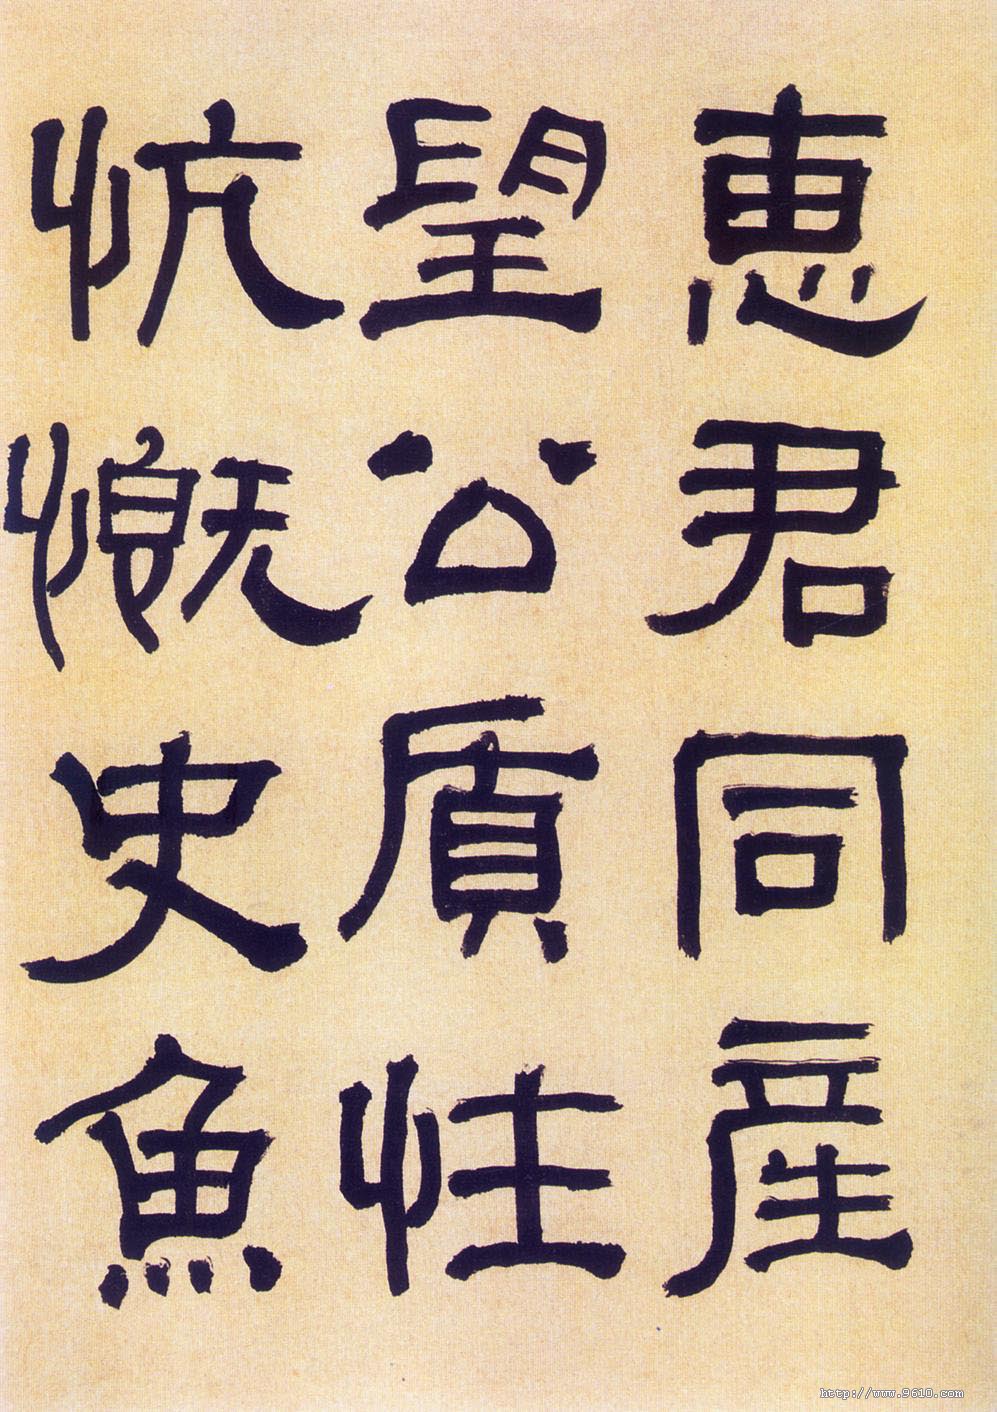 惠君同產
望公質性
忼慨史魚
http://www.9610.com